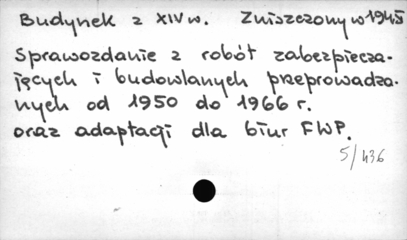 Budynek z XIV w. Zniszczony w 1945
Sprawozdanie z robót zabezpiecza-
jących i budowlanych przeprowadza-
nych od 1950 do 1966 r.
oraz adaptacji dla biur FWP.
5/436